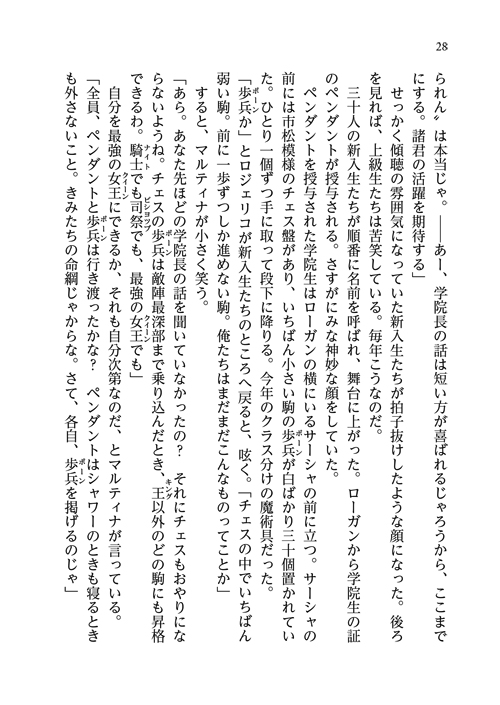 28
られん〟は本当じゃ。――あー、学院長の話は短い方が喜ばれるじゃろうから、ここまで
にする。諸君の活躍を期待する」
　せっかく傾聴の雰囲気になっていた新入生たちが拍子抜けしたような顔になった。後ろ
を見れば、上級生たちは苦笑している。毎年こうなのだ。
　三十人の新入生たちが順番に名前を呼ばれ、舞台に上がった。ローガンから学院生の証
のペンダントが授与される。さすがにみな神妙な顔をしていた。
　ペンダントを授与された学院生はローガンの横にいるサーシャの前に立つ。サーシャの
前には市松模様のチェス盤があり、いちばん小さい駒の歩兵が白ばかり三十個置かれてい
た。ひとり一個ずつ手に取って段下に降りる。今年のクラス分けの魔術具だった。
「歩兵か」とロジェリコが新入生たちのところへ戻ると、呟く。「チェスの中でいちばん
弱い駒。前に一歩ずつしか進めない駒。俺たちはまだまだこんなものってことか」
　すると、マルティナが小さく笑う。
「あら。あなた先ほどの学院長の話を聞いていなかったの？　それにチェスもおやりにな
らないようね。チェスの歩兵は敵陣最深部まで乗り込んだとき、王以外のどの駒にも昇格
できるわ。騎士でも司祭でも、最強の女王でも」
　自分を最強の女王にできるか、それも自分次第なのだ、とマルティナが言っている。
「全員、ペンダントと歩兵は行き渡ったかな？　ペンダントはシャワーのときも寝るとき
も外さないこと。きみたちの命綱じゃからな。さて、各自、歩兵を掲げるのじゃ」